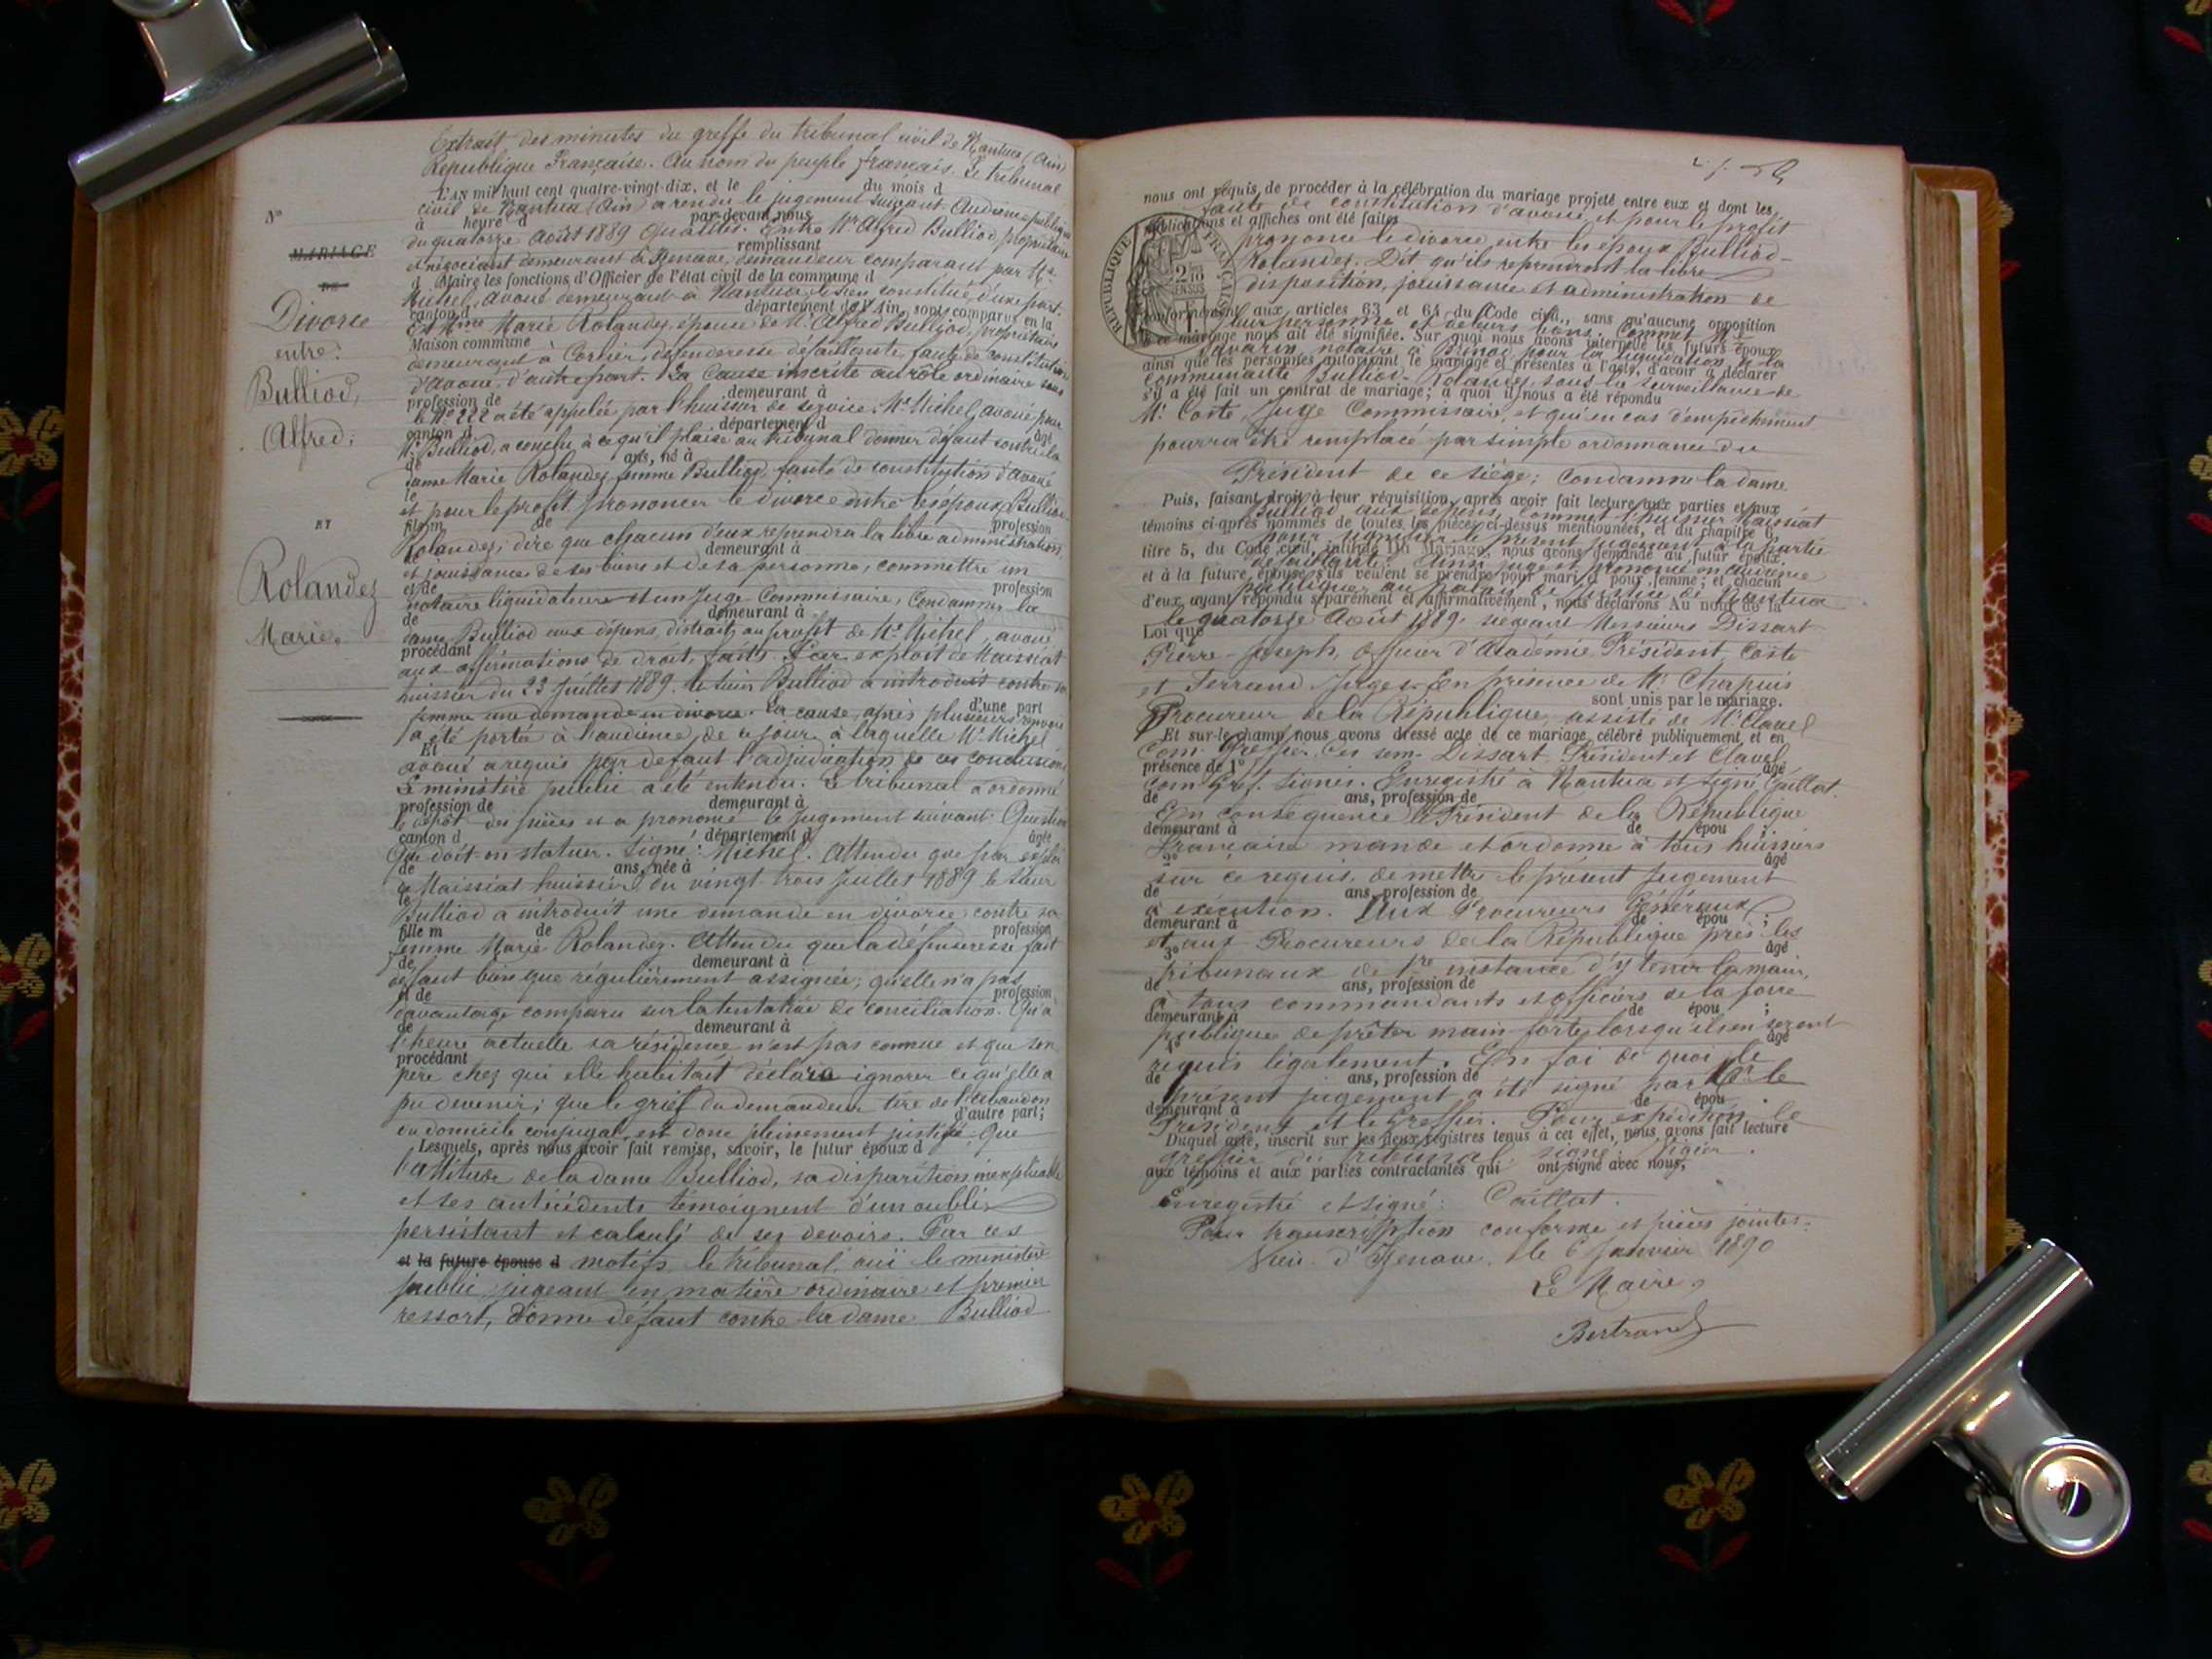 Extrait des minutes du greffe du tribunal civil de Nantua (Ain)
République Française. Au nom du peuple français. Le tribunal
L'AN mil huit cent quatre-vingt-dix, et le du mois d
civil de Nantua (Ain) a rendu le jugement suivant Audience publique
N° à heure d par-devant nous
du quatorze Août 1889 Qualités. Entre Mr Alfred Bulliod, propriétaire
MARIAGE remplissant
et négociant demeurant à Izenave, demandeur comparant par Me
d Maire les fonctions d'Officier de l'état civil de la commune d
DE
Michel, avoué demeurant à Nantua, le sien constitué, d'une part.
canton d département de l'Ain, sont comparus en la
Divorce
Et Mme Marie Rolandez, épouse de Mr Alfred Bulliod, propriétaire
Maison commune
entre:
demeurant à Corlier, défenderesse défaillante, faute de constitution
Bulliod,
d'avoué, d'autre part. La cause inscrite au rôle ordinaire sous
profession de demeurant à
le No 222 a été appelée par l'huissier de service. Me Michel, avoué pour
Alfred;
canton d département d âgé
Mr Bulliod, a conclu à ce qu'il plaise au tribunal donner défaut contre la
de ans, né à
dame Marie Rolandez femme Bulliod, faute de constitution d'avoué
le
et pour le profit prononcer le divorce entre les époux Bulliod
ET
fils m de profession
Rolandez; dire que chacun d'eux reprendra la libre administration
de demeurant à
et jouissance de ses biens et de sa personne, commettre un
Rolandez
et de profession
notaire liquidateur et un Juge Commissaire, Condamner la
de demeurant à
Marie.
dame Bulliod aux dépens, distraits au profit de Me Michel, avoué
procédant
aux affirmations de droit. faits. Par exploit de Maissiat
huissier du 23 Juillet 1889. le sieur Bulliod a introduit contre sa
d'une part
femme une demande en divorce. La cause, après plusieurs renvois
a été portée à l'audience de ce jour à laquelle Me Michel
Et
avoué a requis par défaut l'adjudication de ses conclusions
Le ministère public a été entendu. Le tribunal a ordonné
profession de demeurant à
le dépôt des pièces et a prononcé le jugement suivant: Question
canton d département d âgée
Que doit-on statuer. Signé: Michel. Attendu que par exploit
de ans, née à
de Maissiat huissier du vingt-trois Juillet 1889 le sieur
le
Bulliod a introduit une demande en divorce contre sa
fille m de profession
femme Marie Rolandez. Attendu que la défenderesse fait
de demeurant à
défaut bien que régulièrement assignée; qu'elle n'a pas
et de profession
davantage comparu sur la tentative de conciliation. Qu'à
de demeurant à
l'heure actuelle sa résidence n'est pas connue et que son
procédant
père chez qui elle habitait déclara ignorer ce qu'elle a
pu devenir; que le grief du demandeur tiré de l'abandon
d'autre part;
du domicile conjugal est donc pleinement justifié. Que
Lesquels, après nous avoir fait remise, savoir, le futur époux d
l'attitude de la dame Bulliod, sa disparition inexplicable
et ses antécédents témoignent d'un oubli
persistant et calculé de ses devoirs. Par ces
et la future épouse d motifs, le tribunal, ouï le ministère
public, jugeant en matière ordinaire et premier
ressort, donne défaut contre la dame Bulliod
nous ont requis de procéder à la célébration du mariage projeté entre eux et dont les
faute de constitution d'avoué, et pour le profit
publications et affiches ont été faites
prononce le divorce entre les époux Bulliod-
RÉPUBLIQUE FRANÇAISE
Rolandez. Dit qu'ils reprendront la libre
disposition, jouissance et administration de
conformément aux articles 63 et 64 du Code civil, sans qu'aucune opposition
leur personne et de leurs biens. Commet Me
à ce mariage nous ait été signifiée. Sur quoi nous avons interpellé les futurs époux
Savarin, notaire à Brénod pour la liquidation de la
ainsi que les personnes autorisant le mariage et présentes à l'acte, d'avoir à déclarer
communauté Bulliod-Rolandez, sous la surveillance de
s'il a été fait un contrat de mariage; à quoi il nous a été répondu
Mr Coste, Juge Commissaire, et qui en cas d'empêchement
pourra être remplacé par simple ordonnance du
Président de ce siège; Condamne la dame
Puis, faisant droit à leur réquisition, après avoir fait lecture aux parties et aux
Bulliod aux dépens, Commet l'huissier Maissiat
témoins ci-après nommés de toutes les pièces ci-dessus mentionnées, et du chapitre 6,
pour signifier le présent jugement à la partie
titre 5, du Code civil, intitulé Du Mariage, nous avons demandé au futur époux
défaillante. Ainsi jugé et prononcé en audience
et à la future épouse s'ils veulent se prendre pour mari et pour femme; et chacun
publique au palais de justice de Nantua
d'eux ayant répondu séparément et affirmativement, nous déclarons Au nom de la
le quatorze Août 1889. siégeant Messieurs Dissart
Loi que
Pierre-Joseph, Officier d'Académie Président, Coste
et Ferrand Juges. En présence de Mr Chapuis
sont unis par le mariage.
Procureur de la République, assisté de Mr Clavel
Et sur-le-champ nous avons dressé acte de ce mariage, célébré publiquement, et en
Com. Greffier. Dissart, Président et Clavel
présence de 1° âgé
com Gref. signés. Enregistré à Nantua et signé, Caillat.
de ans, profession de
En conséquence le Président de la République
demeurant à de épou ;
Française mande et ordonne à tous huissiers
2° âgé
sur ce requis de mettre le présent jugement
de ans, profession de
à exécution. Aux Procureurs Généraux
demeurant à de épou ;
et aux Procureurs de la République près les
3° âgé
tribunaux de 1re instance d'y tenir la main,
de ans, profession de
à tous commandants et officiers de la force
demeurant à de épou ;
publique de prêter main forte lorsqu'ils en seront
4° âgé
requis légalement. En foi de quoi le
de ans, profession de
présent jugement a été signé par Mr le
demeurant à de épou
Président et le Greffier. Pour expédition le
Duquel acte, inscrit sur les deux registres tenus à cet effet, nous avons fait lecture
greffier du tribunal, signé:
aux témoins et aux parties contractantes qui ont signé avec nous,
Enregistré et signé: Caillat.
Pour transcription conforme et pièces jointes.
Vieu d'Izenave, le 6 Janvier 1890
Le Maire,
Bertrand